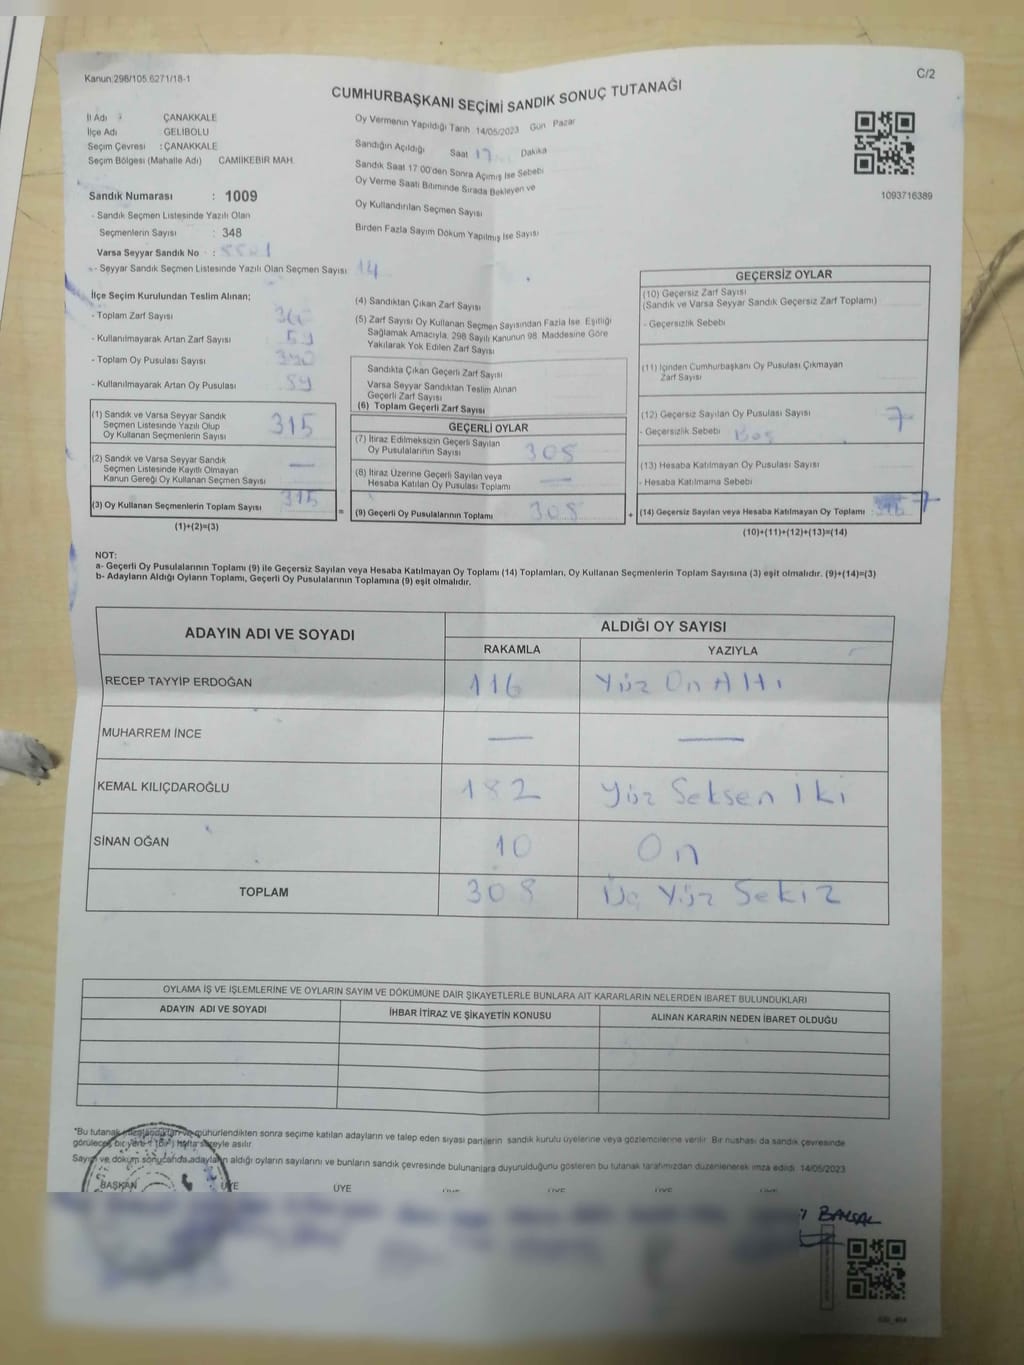 Kanun:298/105.6271/18-1
C/2
CUMHURBAŞKANI SEÇİMİ SANDIK SONUÇ TUTANAĞI
İl Adı : ÇANAKKALE
İlçe Adı GELİBOLU
Seçim Çevresi : ÇANAKKALE
Seçim Bölgesi (Mahalle Adı) CAMİİKEBİR MAH.
Sandık Numarası : 1009
- Sandık Seçmen Listesinde Yazılı Olan
Seçmenlerin Sayısı : 348
Varsa Seyyar Sandık No :
- Seyyar Sandık Seçmen Listesinde Yazılı Olan Seçmen Sayısı 14
Oy Vermenin Yapıldığı Tarih 14/05/2023 Gün Pazar
Sandığın Açıldığı Saat 17 Dakika
Sandık Saat 17 00'den Sonra Açımış İse Sebebi
Oy Verme Saati Bitiminde Sırada Bekleyen ve
Oy Kullandırılan Seçmen Sayısı
Birden Fazla Sayım Döküm Yapılmış İse Sayısı
1093716389
İlçe Seçim Kurulundan Teslim Alınan;
- Toplam Zarf Sayısı
- Kullanılmayarak Artan Zarf Sayısı 59
- Toplam Oy Pusulası Sayısı
- Kullanılmayarak Artan Oy Pusulası 59
(1) Sandık ve Varsa Seyyar Sandık
Seçmen Listesinde Yazılı Olup
Oy Kullanan Seçmenlerin Sayısı 315
(2) Sandık ve Varsa Seyyar Sandık
Seçmen Listesinde Kayıtlı Olmayan
Kanun Gereği Oy Kullanan Seçmen Sayısı —
(3) Oy Kullanan Seçmenlerin Toplam Sayısı 315
(1)+(2)=(3)
(4) Sandıktan Çıkan Zarf Sayısı
(5) Zarf Sayısı Oy Kullanan Seçmen Sayısından Fazla İse, Eşitliği
Sağlamak Amacıyla, 298 Sayılı Kanunun 98. Maddesine Göre
Yakılarak Yok Edilen Zarf Sayısı
Sandıkta Çıkan Geçerli Zarf Sayısı
Varsa Seyyar Sandıktan Teslim Alınan
Geçerli Zarf Sayısı
(6) Toplam Geçerli Zarf Sayısı
GEÇERLİ OYLAR
(7) İtiraz Edilmeksizin Geçerli Sayılan
Oy Pusulalarının Sayısı 308
(8) İtiraz Üzerine Geçerli Sayılan veya
Hesaba Katılan Oy Pusulası Toplamı —
(9) Geçerli Oy Pusulalarının Toplamı 308
GEÇERSİZ OYLAR
(10) Geçersiz Zarf Sayısı
(Sandık ve Varsa Seyyar Sandık Geçersiz Zarf Toplamı)
- Geçersizlik Sebebi
(11) İçinden Cumhurbaşkanı Oy Pusulası Çıkmayan
Zarf Sayısı
(12) Geçersiz Sayılan Oy Pusulası Sayısı 7
- Geçersizlik Sebebi
(13) Hesaba Katılmayan Oy Pusulası Sayısı
- Hesaba Katılmama Sebebi
(14) Geçersiz Sayılan veya Hesaba Katılmayan Oy Toplamı : 7
(10)+(11)+(12)+(13)=(14)
NOT:
a- Geçerli Oy Pusulalarının Toplamı (9) ile Geçersiz Sayılan veya Hesaba Katılmayan Oy Toplamı (14) Toplamları, Oy Kullanan Seçmenlerin Toplam Sayısına (3) eşit olmalıdır. (9)+(14)=(3)
b- Adayların Aldığı Oyların Toplamı, Geçerli Oy Pusulalarının Toplamına (9) eşit olmalıdır.
ADAYIN ADI VE SOYADI ALDIĞI OY SAYISI
RAKAMLA YAZIYLA
RECEP TAYYİP ERDOĞAN 116 Yüz On Altı
MUHARREM İNCE — —
KEMAL KILIÇDAROĞLU 182 Yüz Seksen İki
SİNAN OĞAN 10 On
TOPLAM 308 Üç Yüz Sekiz
OYLAMA İŞ VE İŞLEMLERİNE VE OYLARIN SAYIM VE DÖKÜMÜNE DAİR ŞİKAYETLERLE BUNLARA AİT KARARLARIN NELERDEN İBARET BULUNDUKLARI
ADAYIN ADI VE SOYADI İHBAR İTİRAZ VE ŞİKAYETİN KONUSU ALINAN KARARIN NEDEN İBARET OLDUĞU
*Bu tutanak mühürlendikten sonra seçime katılan adayların ve talep eden siyasi partilerin sandık kurulu üyelerine veya gözlemcilerine verilir. Bir nüshası da sandık çevresinde
görülecek bir yere 1 (Bir) hafta süreyle asılır.
Sayım ve döküm sonucunda adayların aldığı oyların sayılarını ve bunların sandık çevresinde bulunanlara duyurulduğunu gösteren bu tutanak tarafımızdan düzenlenerek imza edildi. 14/05/2023
BAŞKAN ÜYE ÜYE ÜYE ÜYE ÜYE ÜYE